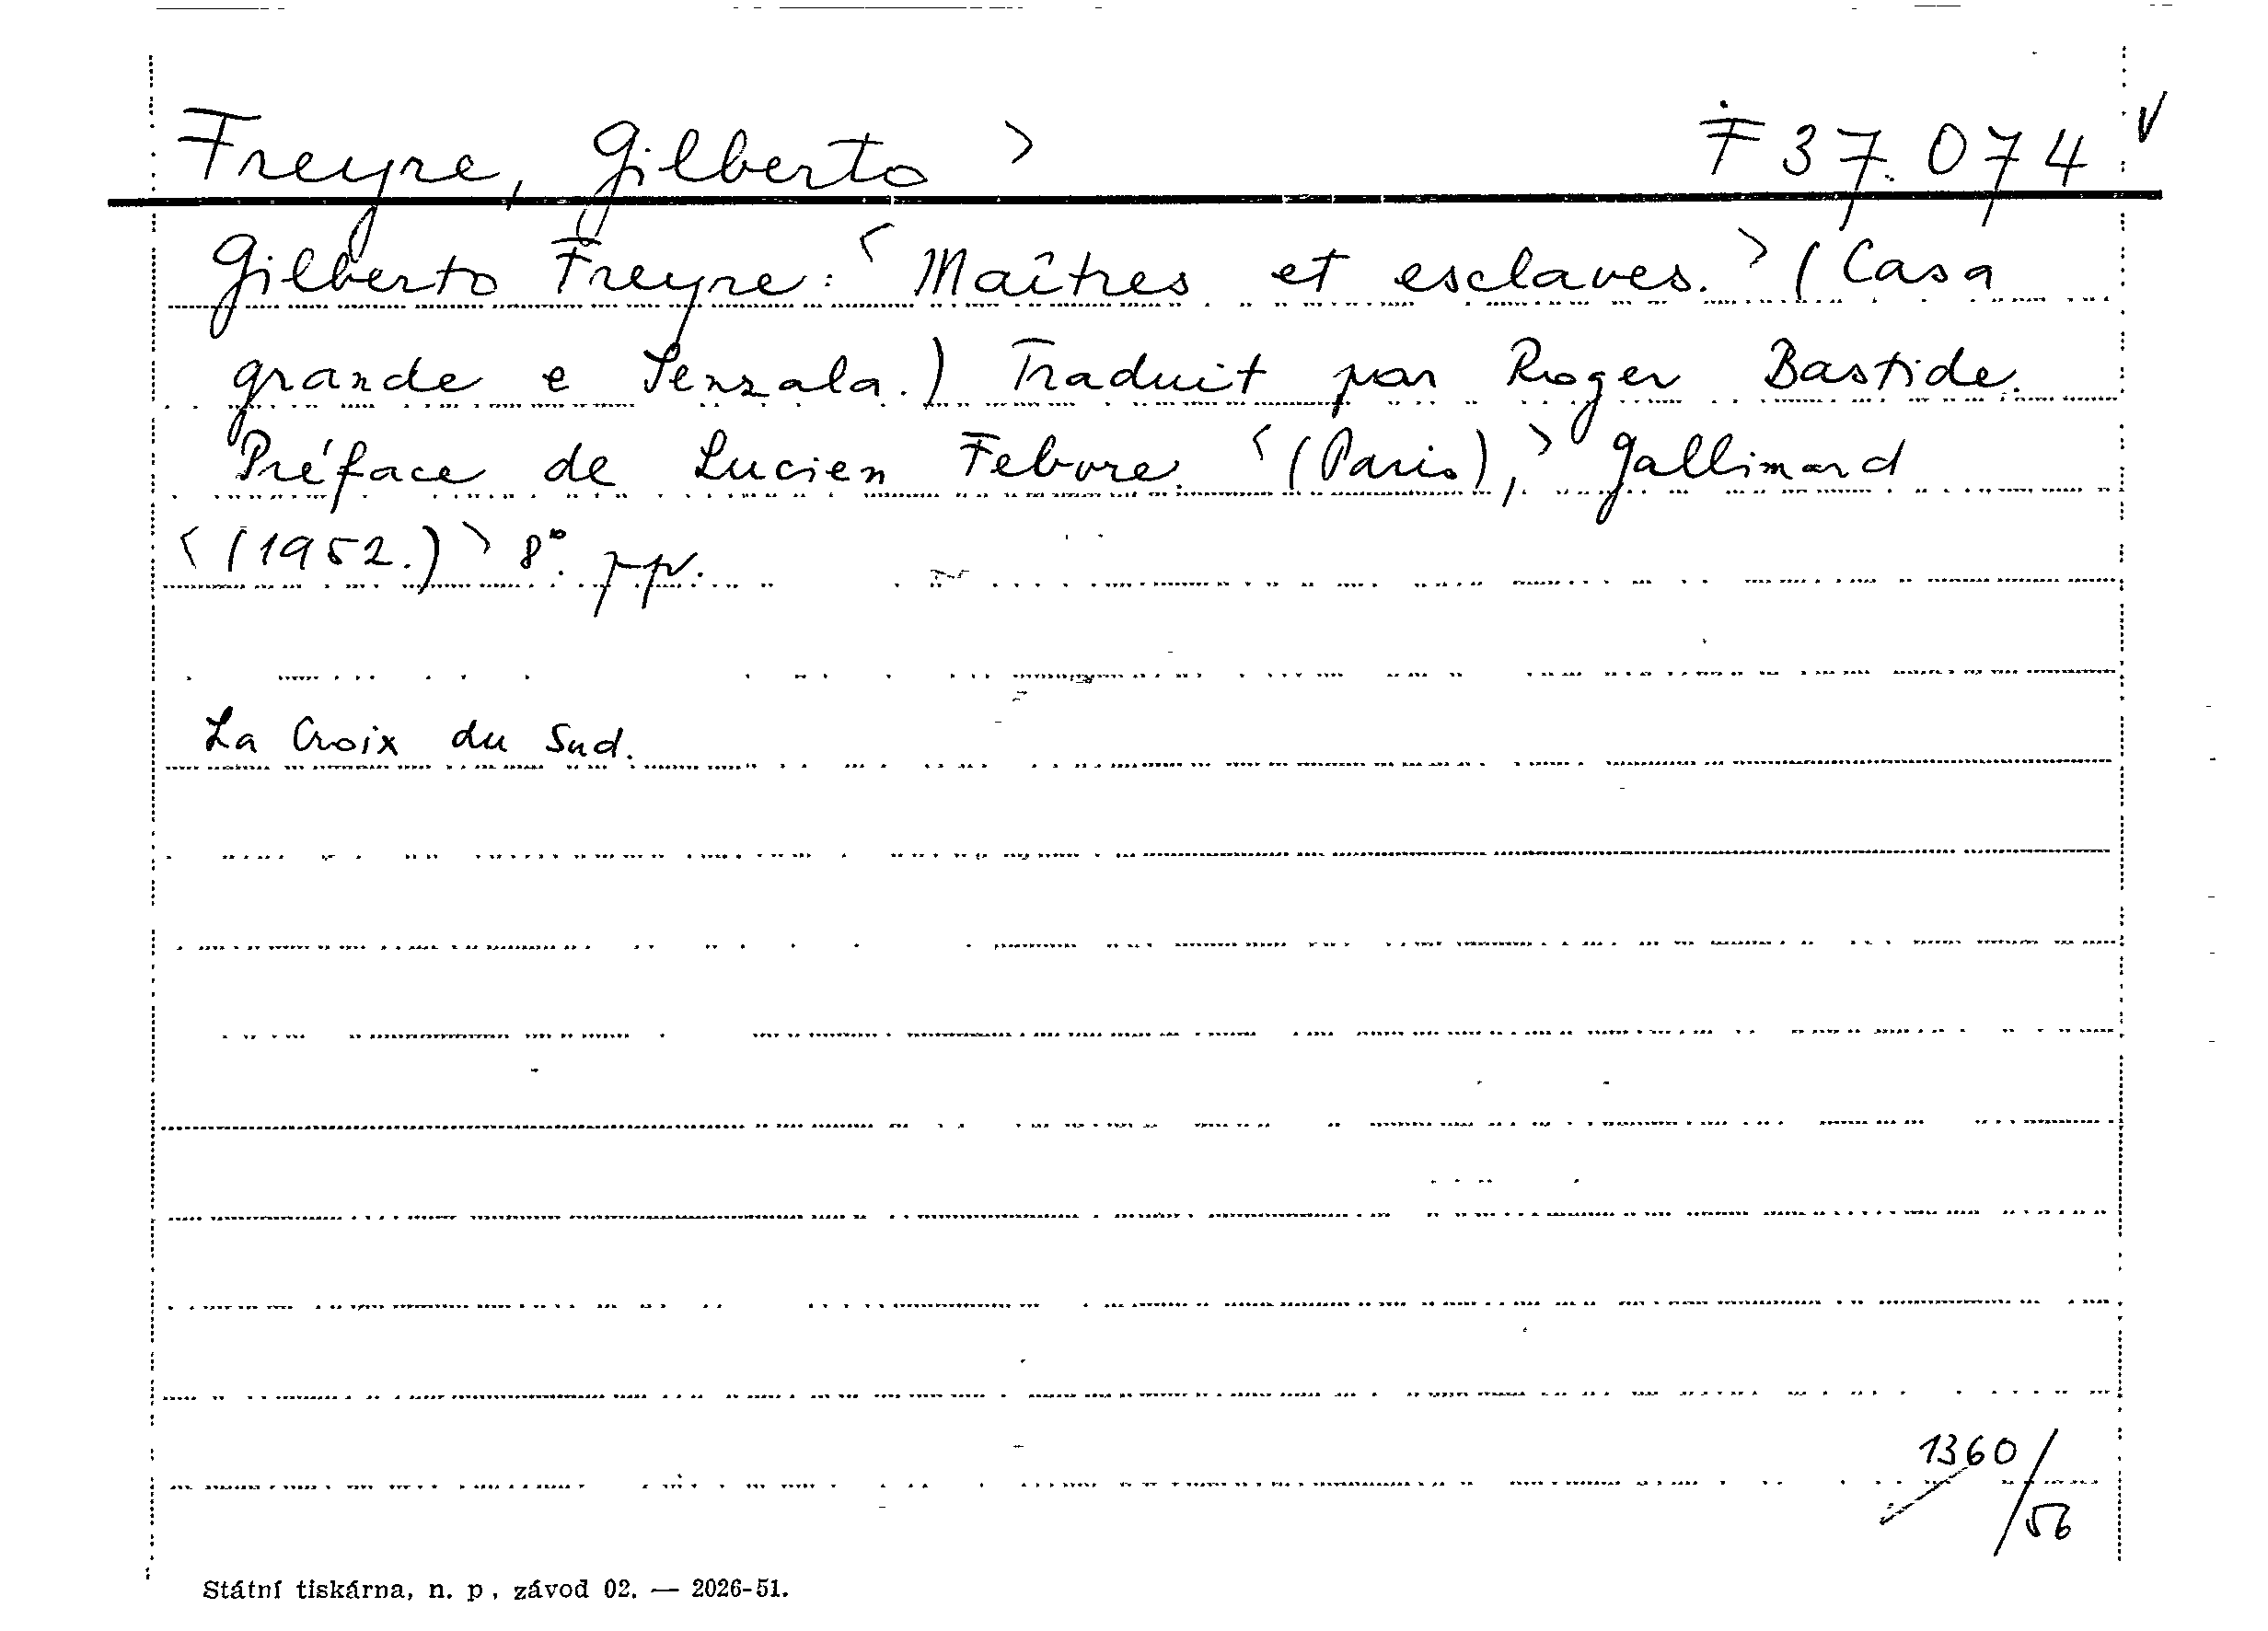 Freyre, Gilberto > F 37.074 v
Gilberto Freyre: < Maîtres et esclaves. > (Casa
grande e Senzala.) Traduit par Roger Bastide.
Préface de Lucien Febvre. < (Paris), > Gallimard
< (1952.) > 8°. pp.
La Croix du Sud.
1360/
56
Státní tiskárna, n. p., závod 02. — 2026-51.